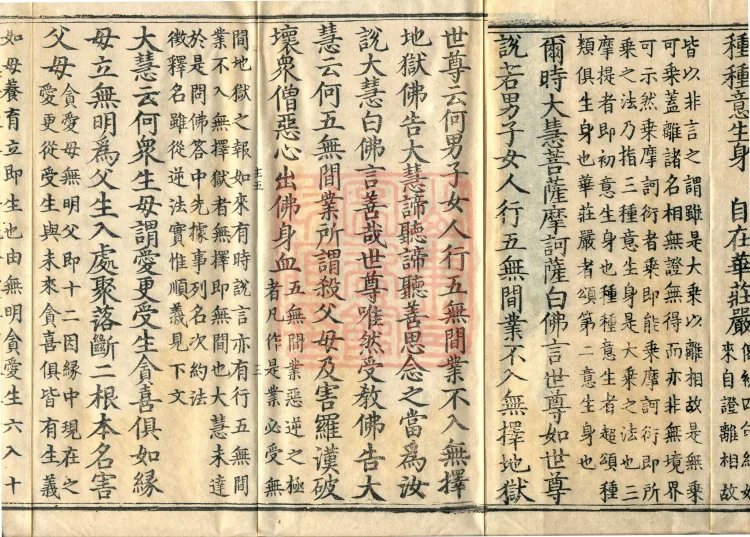 種種意生身　自在華莊嚴
來自證離相故
皆以非言之謂雖是大乘以離相故是無乘
可乘蓋離諸名相無證無得而亦非無境界
可示然乘摩訶衍者乘即能乘摩訶衍即所
乘之法乃指三種意生身是大乘之法也三
摩提者即初意生身也種種意生者超頌種
類俱生身也華莊嚴者頌第二意生身也
爾時大慧菩薩摩訶薩白佛言世尊如世尊
說若男子女人行五無間業不入無擇地獄
世尊云何男子女人行五無間業不入無擇
地獄佛告大慧諦聽諦聽善思念之當為汝
說大慧白佛言善哉世尊唯然受教佛告大
慧云何五無間業所謂殺父母及害羅漢破
壞眾僧惡心出佛身血五無間業惡逆之極
者凡作是業必受無
間地獄之報如來有時說言亦有行五無間
業不入無擇獄者無擇即無間也大慧未達
於是問佛答中先據事列名次約法
徵釋名雖從逆法實惟順義見下文
大慧云何眾生母謂愛更受生貪喜俱如緣
母立無明為父生入處聚落斷二根本名害
父母貪愛母無明父即十二因緣中現在之
愛更從受生與未來貪喜俱皆有生義
如母養育立即生也由無明貪愛生六入十